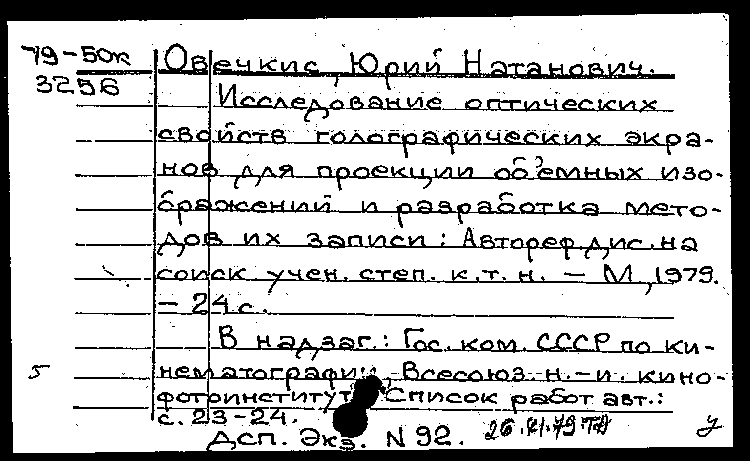 79-50к Овечкис, Юрий Натанович.
3256
Исследование оптических
свойств голографических экра-
нов для проекции об'емных изо-
бражений и разработка мето-
дов их записи: Автореф.дис.на
соиск. учен. степ. к.т.н. – М, 1979.
– 24 с.
В надзаг.: Гос. ком. СССР по ки-
5 нематографии, Всесоюз. н.-и. кино-
фотоинститут. Список работ авт.:
с. 23-24.
ДСП. Экз. N 92.